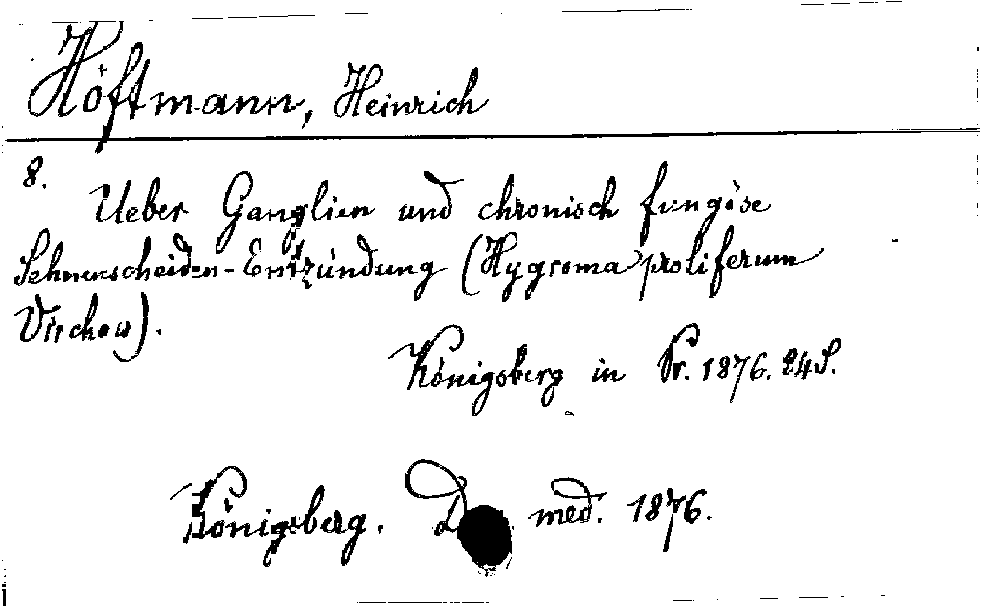 Höftmann, Heinrich
8.
Ueber Ganglien und chronisch fungöse
Sehnenscheiden-Entzündung (Hygroma proliferum
Virchow).
Königsberg in Pr. 1876. 24 S.
Königsberg. med. 1876.